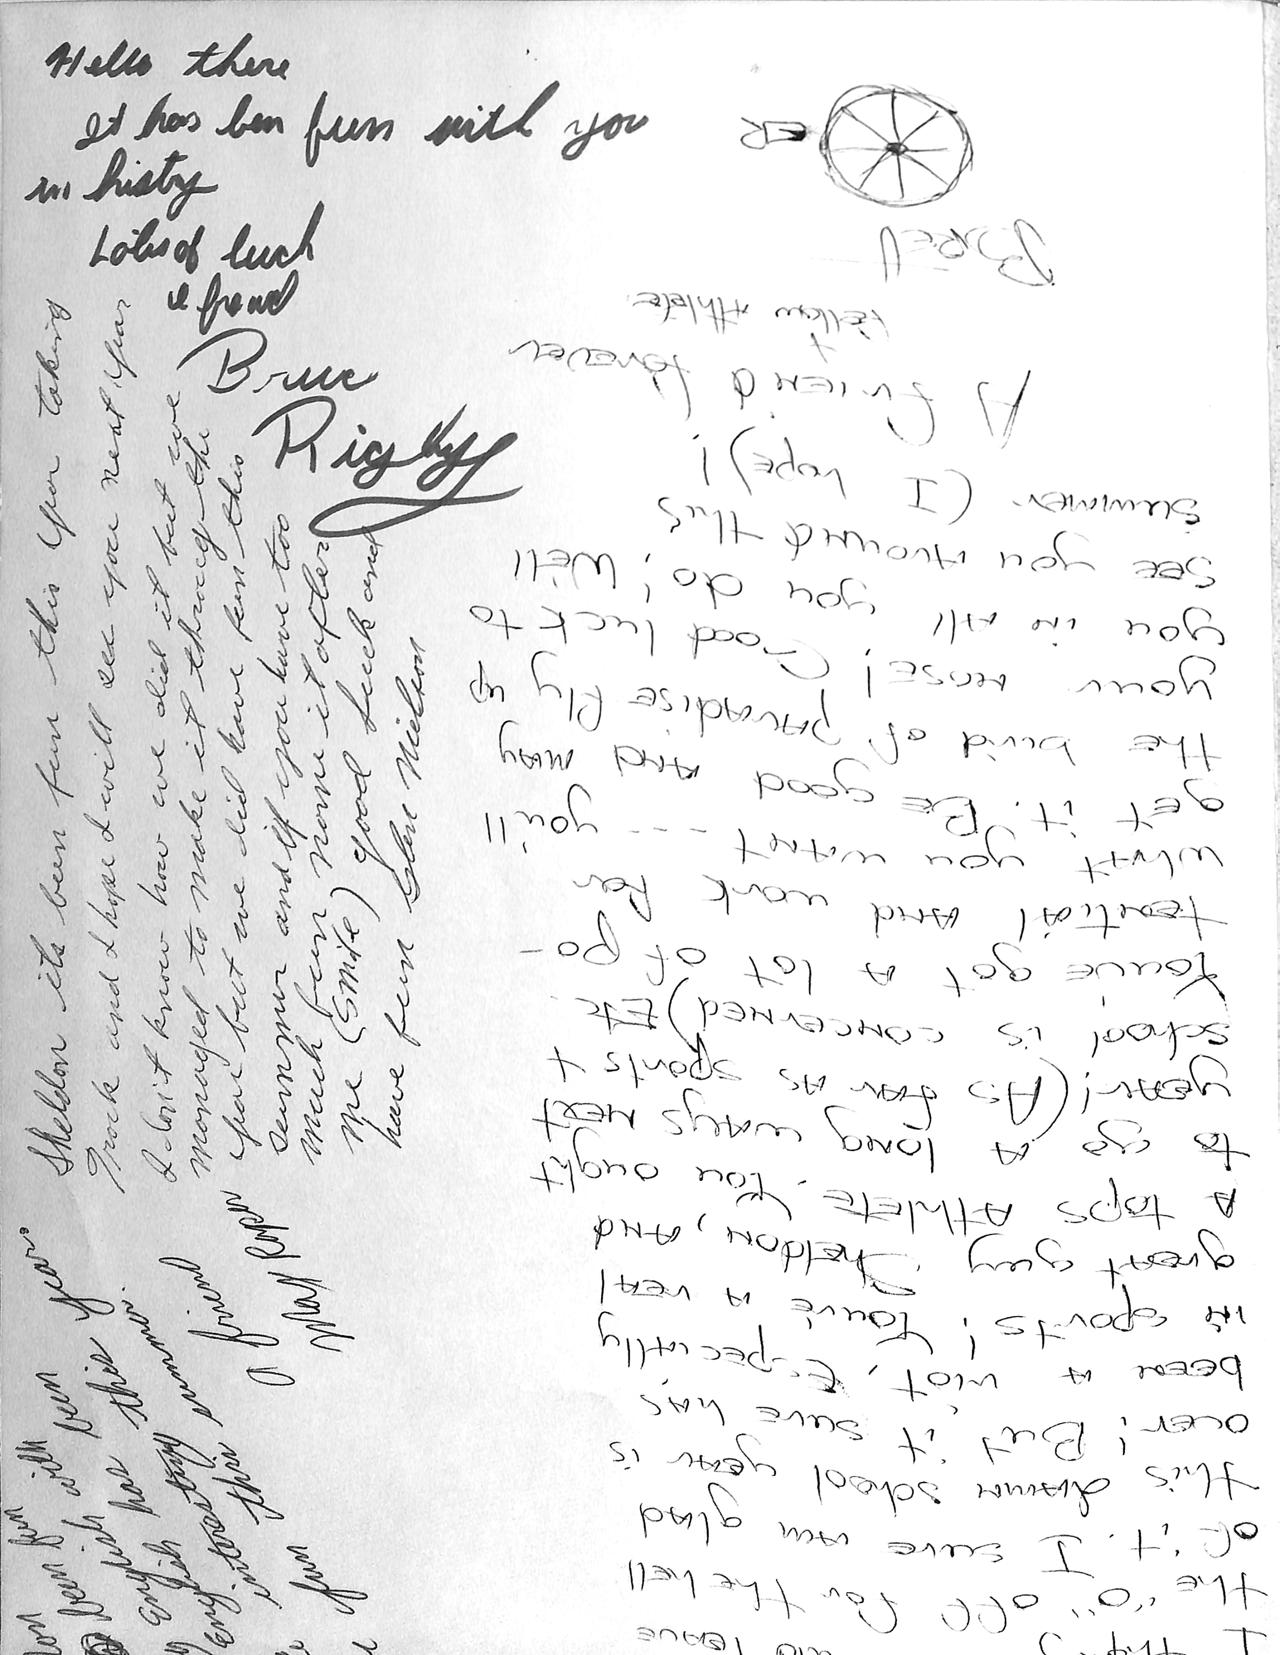 Hello there
It has ben fun with you
in histry
Lots of luck
a friend
Bruce
Rigby
Sheldon its been fun this year taking
Track and I hope I will see you next year
I don't know how we did it but we
managed to make it throug the
year but we did have fun this
summer and if you have too
much fun name it after
me (smile) good luck and
have fun Glen Nielson
fun
been fun with
english been
English has this year.
interesting summer.
fun this summer
friend
A
Max Roper
I leave
the "O" off for the hell
of it. I sure am glad
this damn school year is
over! But it sure has
been a riot, Especially
in sports! You're a real
great guy Sheldon, and
A tops Athlete. You ought
to go A long ways next
year! (As far as sports +
school is concerned) Etc.
You've got A lot of po-
tential and work for
what you want --- you'll
get it. Be good and may
the bird of paradise fly up
your nose! Good luck to
you in All you do; Well
see you around this
summer. (I hope)!
A friend forever
+
Fellow Athlete
BREU
ER